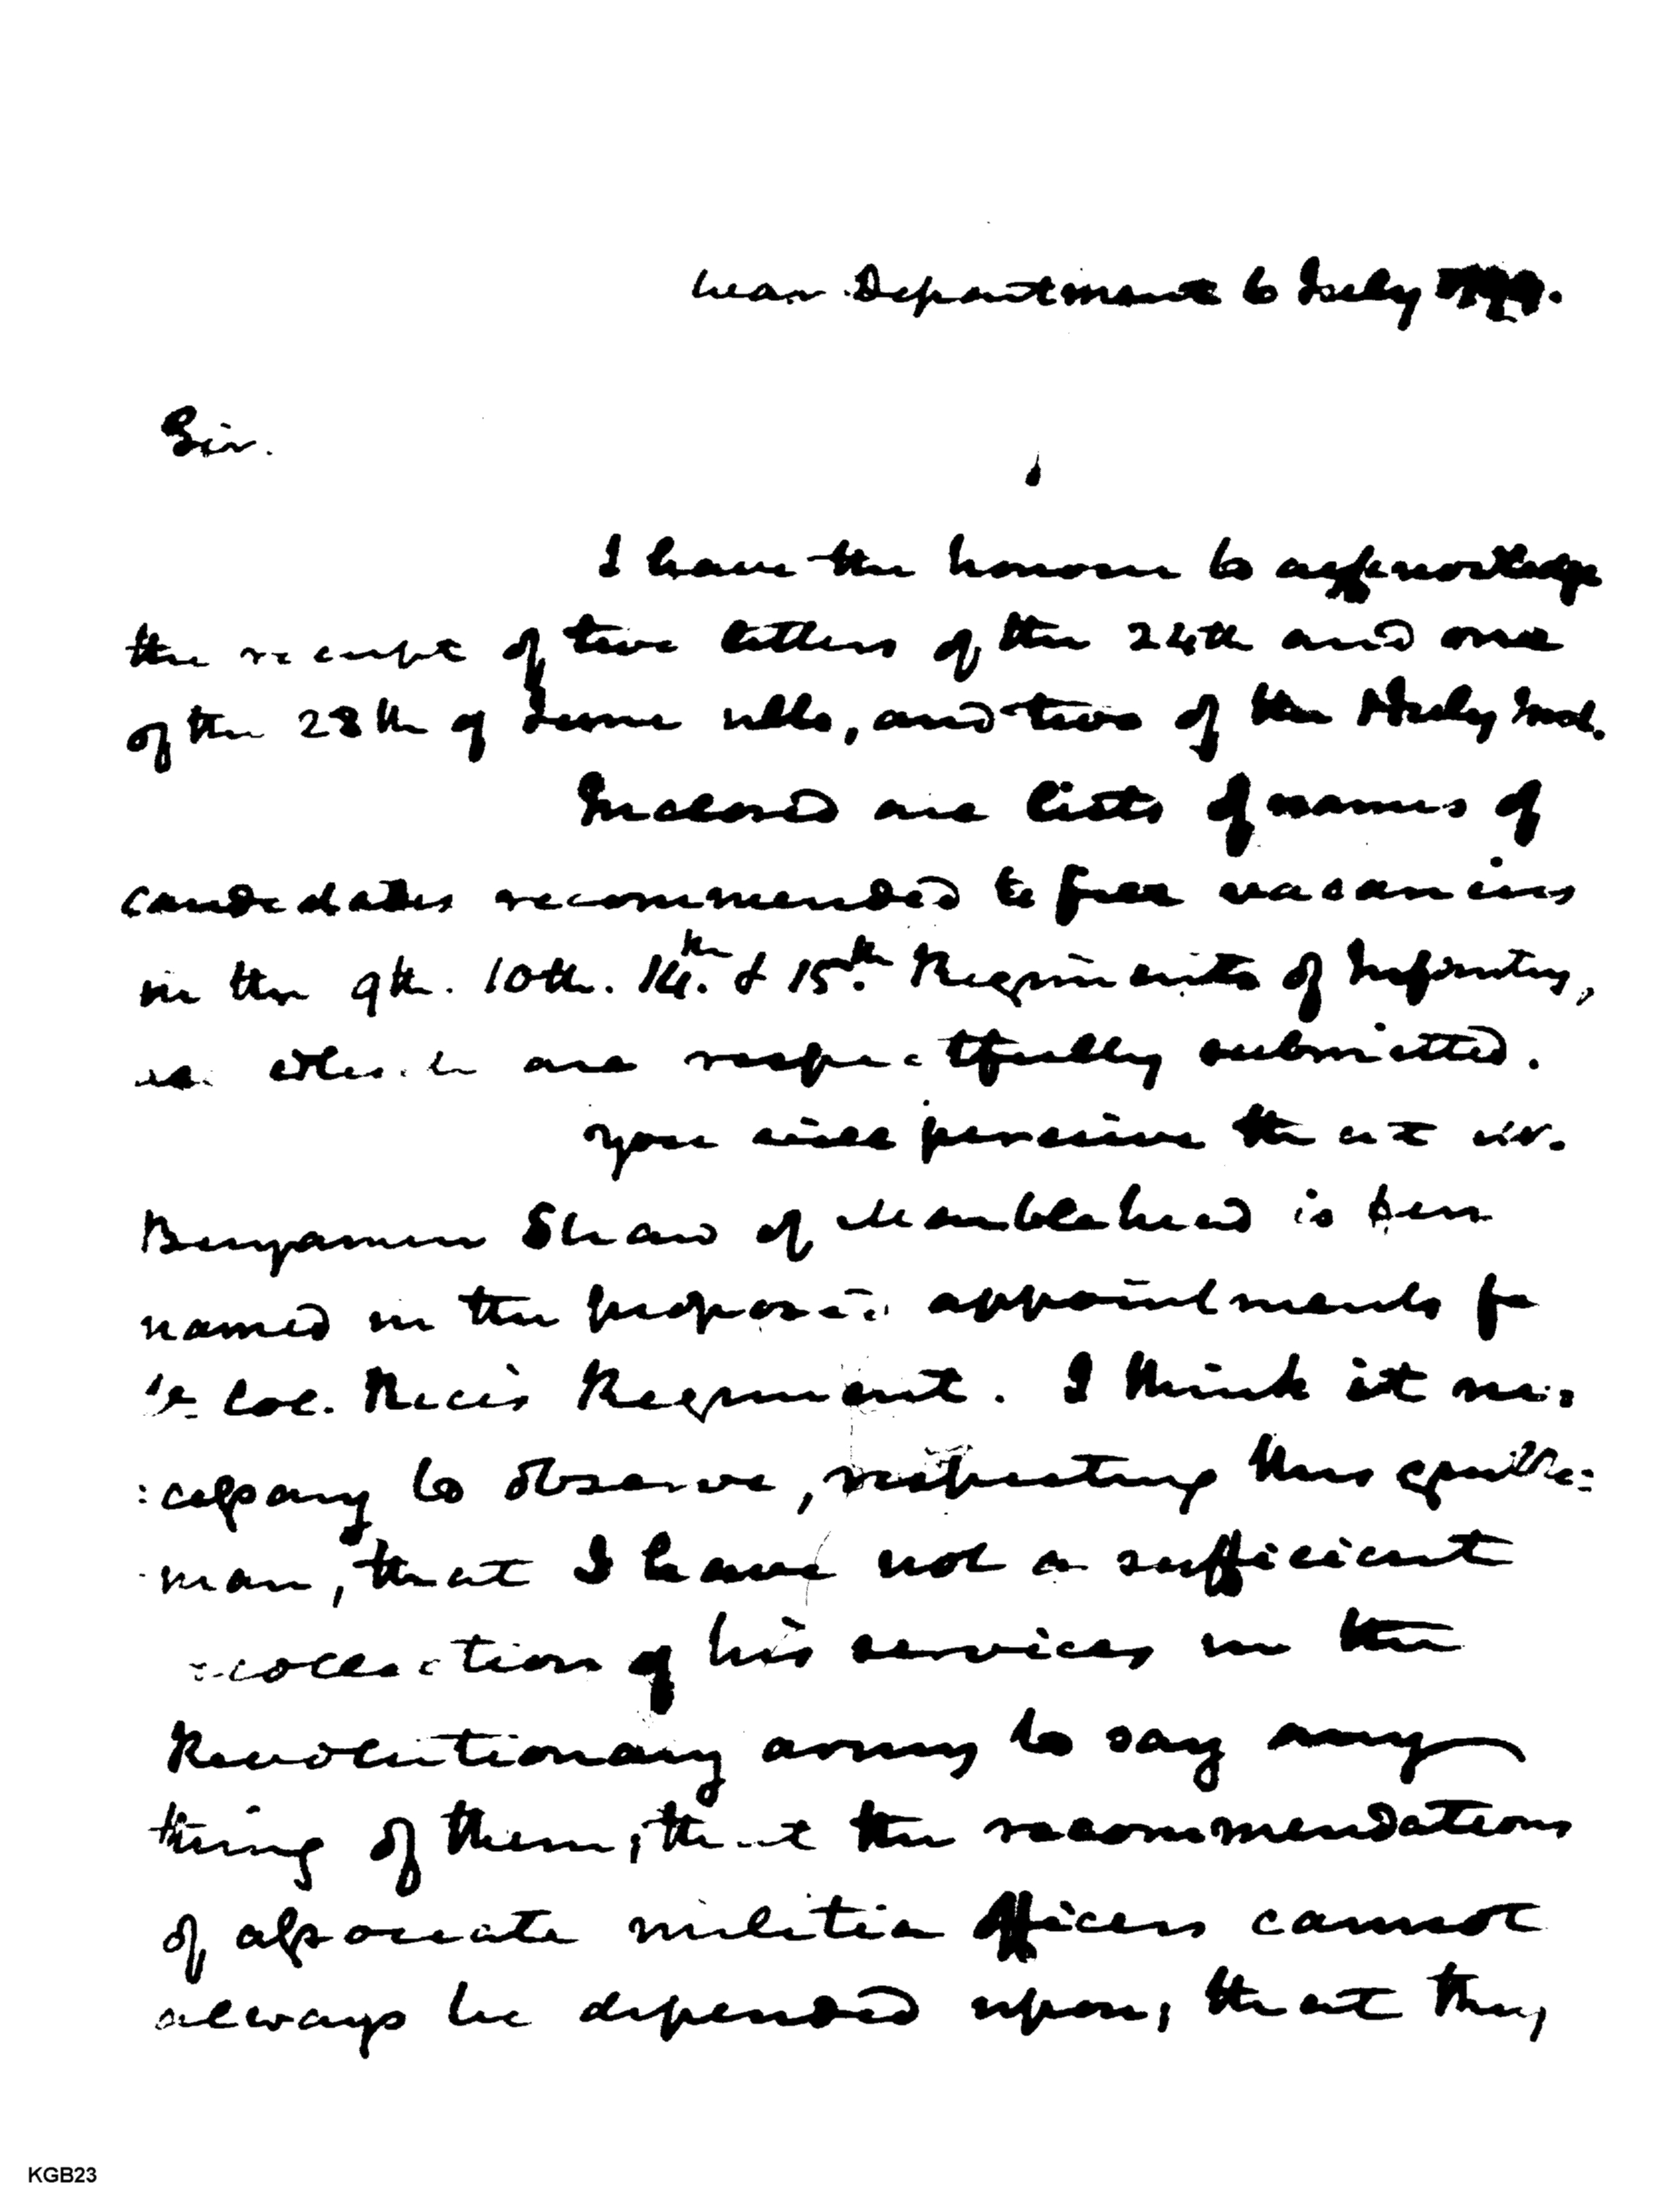 War Department 6 July
Sir.
I have the honour to acknowledge
the receipt of two letters of the 24th and one
of the 28th of June ulto, and two of the July Inst.
Inclosed are lists of names of
candidates recommended to fill vacancies
in the 9th. 10th. 14th. & 15th. Regiments of Infantry,
which are respectfully submitted.
You will perceive that
Benjamin Shaw of Marblehead is here
named in the proposed appointments for
Col. Rices Regiment. I think it ne:
:cessary to observe, respecting this gentle:
-man, that I have not a sufficient
recollection of his services in the
Revolutionary army to say any
thing of them; that the recommendations
of associate militia officers cannot
always be depended upon; that they
KGB23